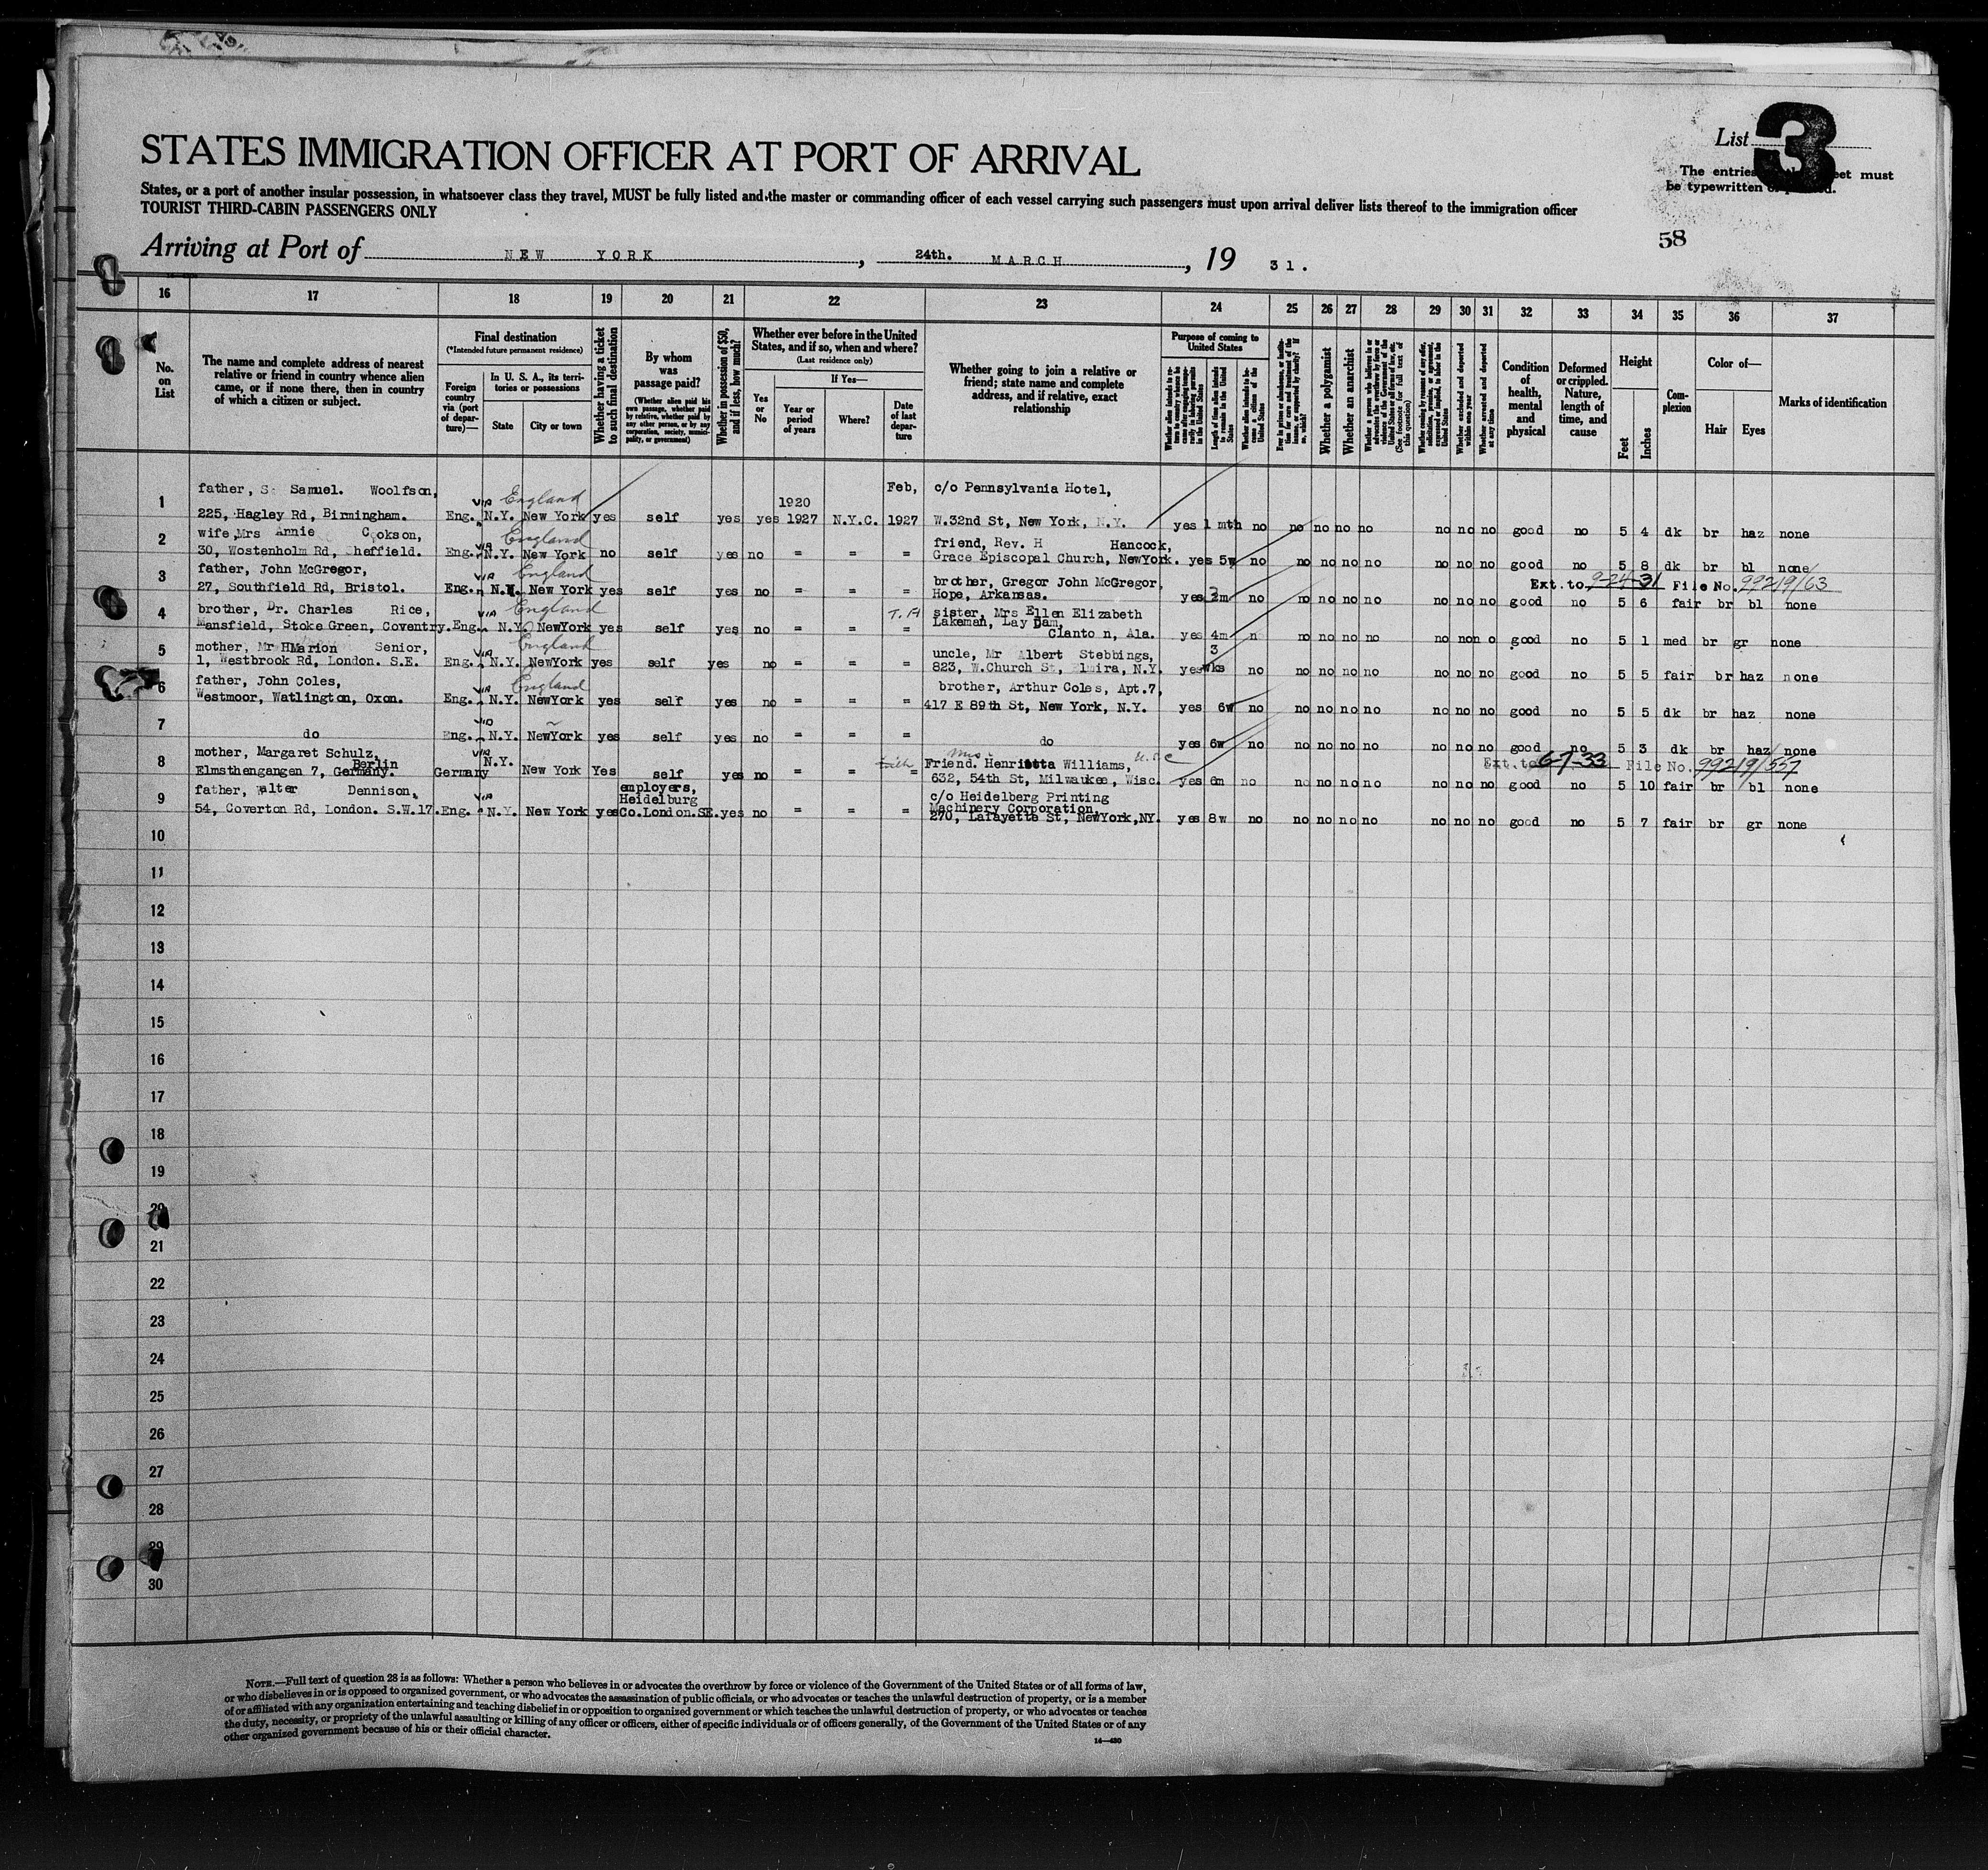 STATES IMMIGRATION OFFICER AT PORT OF ARRIVAL
List 3
The entries sheet must
be typewritten or printed.
States, or a port of another insular possession, in whatsoever class they travel, MUST be fully listed and the master or commanding officer of each vessel carrying such passengers must upon arrival deliver lists thereof to the immigration officer
TOURIST THIRD-CABIN PASSENGERS ONLY
58
Arriving at Port of NEW YORK, 24th. MARCH, 19 31.
16 17 18 19 20 21 22 23 24 25 26 27 28 29 30 31 32 33 34 35 36 37
No. on List
The name and complete address of nearest relative or friend in country whence alien came, or if none there, then in country of which a citizen or subject.
Final destination
(*Intended future permanent residence)
Foreign country via (port of departure)—
In U. S. A., its territories or possessions
State
City or town
Whether having a ticket to such final destination
By whom was passage paid?
(Whether alien paid his own passage, whether paid by relative, whether paid by any other person, or by any corporation, society, municipality, or government)
Whether in possession of $50, and if less, how much?
Whether ever before in the United States, and if so, when and where?
(Last residence only)
Yes or No
If Yes—
Year or period of years
Where?
Date of last departure
Whether going to join a relative or friend; state name and complete address, and if relative, exact relationship
Purpose of coming to United States
Whether alien intends to return to country whence he came after engaging temporarily in laboring pursuits in the United States
Length of time alien intends to remain in the United States
Whether alien intends to become a citizen of the United States
Ever in prison or almshouse, or institution for care and treatment of the insane, or supported by charity? If so, which?
Whether a polygamist
Whether an anarchist
Whether a person who believes in or advocates the overthrow by force or violence of the Government of the United States or all forms of law, etc. (See footnote for full text of this question)
Whether coming by reasons of any offer, solicitation, promise, or agreement, expressed or implied, to labor in the United States
Whether excluded and deported within one year
Whether arrested and deported at any time
Condition of health, mental and physical
Deformed or crippled. Nature, length of time, and cause
Height
Feet
Inches
Complexion
Color of—
Hair
Eyes
Marks of identification
father, Samuel. Woolfson, via England 1920 Feb, c/o Pennsylvania Hotel,
1 225, Hagley Rd, Birmingham. Eng. N.Y. New York yes self yes yes 1927 N.Y.C. 1927 W.32nd St, New York, N.Y. yes 1 mth no no no no no no no no good no 5 4 dk br haz none
wife, Mrs Annie Cookson, via England friend, Rev. H Hancock,
2 30, Wostenholm Rd, Sheffield. Eng. N.Y. New York no self yes no = = = Grace Episcopal Church, NewYork. yes 5w no no no no no no no no good no 5 8 dk br bl none
father, John McGregor, via England brother, Gregor John McGregor, Ext. to 9-24-31 File No. 99219/63
3 27, Southfield Rd, Bristol. Eng. N.Y. New York yes self yes no = = = Hope, Arkansas. yes 2m no no no no no no no no good no 5 6 fair br bl none
brother, Dr. Charles Rice, via England T.A sister, Mrs Ellen Elizabeth
4 Mansfield, Stoke Green, Coventry. Eng. N.Y. NewYork yes self yes no = = = Lakeman, Lay Dam,
Clanton, Ala. yes 4m n no no no no no non o good no 5 1 med br gr none
mother, Mr HMarion Senior, via England uncle, Mr Albert Stebbings, 3
5 1, Westbrook Rd, London. S.E. Eng. N.Y. NewYork yes self yes no = = = 823, W.Church St, Elmira, N.Y. yes wks no no no no no no no no good no 5 5 fair br haz none
father, John Coles, via England brother, Arthur Coles, Apt.7,
6 Westmoor, Watlington, Oxon. Eng. N.Y. NewYork yes self yes no = = = 417 E 89th St, New York, N.Y. yes 6w no no no no no no no no good no 5 5 dk br haz none
7 do Eng. via N.Y. NewYork yes self yes no = = = do yes 6w no no no no no no no no good no 5 3 dk br haz none
mother, Margaret Schulz, via Mrs U.S.C Ext. to 6-7-33 File No. 99219/557
8 Berlin N.Y. Friend. Henrietta Williams,
Elmsthengangen 7, Germany. Germany New York Yes self yes no = = = 632, 54th St, Milwaukee, Wisc. yes 6m no no no no no no no no good no 5 10 fair br bl none
father, Walter Dennison, via employers, c/o Heidelberg Printing
9 Heidelburg Machinery Corporation
54, Coverton Rd, London. S.W.17. Eng. N.Y. New York yes Co.London.SE. yes no = = = 270, Lafayette St, NewYork,NY. yes 8w no no no no no no no no good no 5 7 fair br gr none
10
11
12
13
14
15
16
17
18
19
20
21
22
23
24
25
26
27
28
29
30
NOTE.—Full text of question 28 is as follows: Whether a person who believes in or advocates the overthrow by force or violence of the Government of the United States or of all forms of law,
or who disbelieves in or is opposed to organized government, or who advocates the assassination of public officials, or who advocates or teaches the unlawful destruction of property, or is a member
of or affiliated with any organization entertaining and teaching disbelief in or opposition to organized government or which teaches the unlawful destruction of property, or who advocates or teaches
the duty, necessity, or propriety of the unlawful assaulting or killing of any officer or officers, either of specific individuals or of officers generally, of the Government of the United States or of any
other organized government because of his or their official character.
14—430